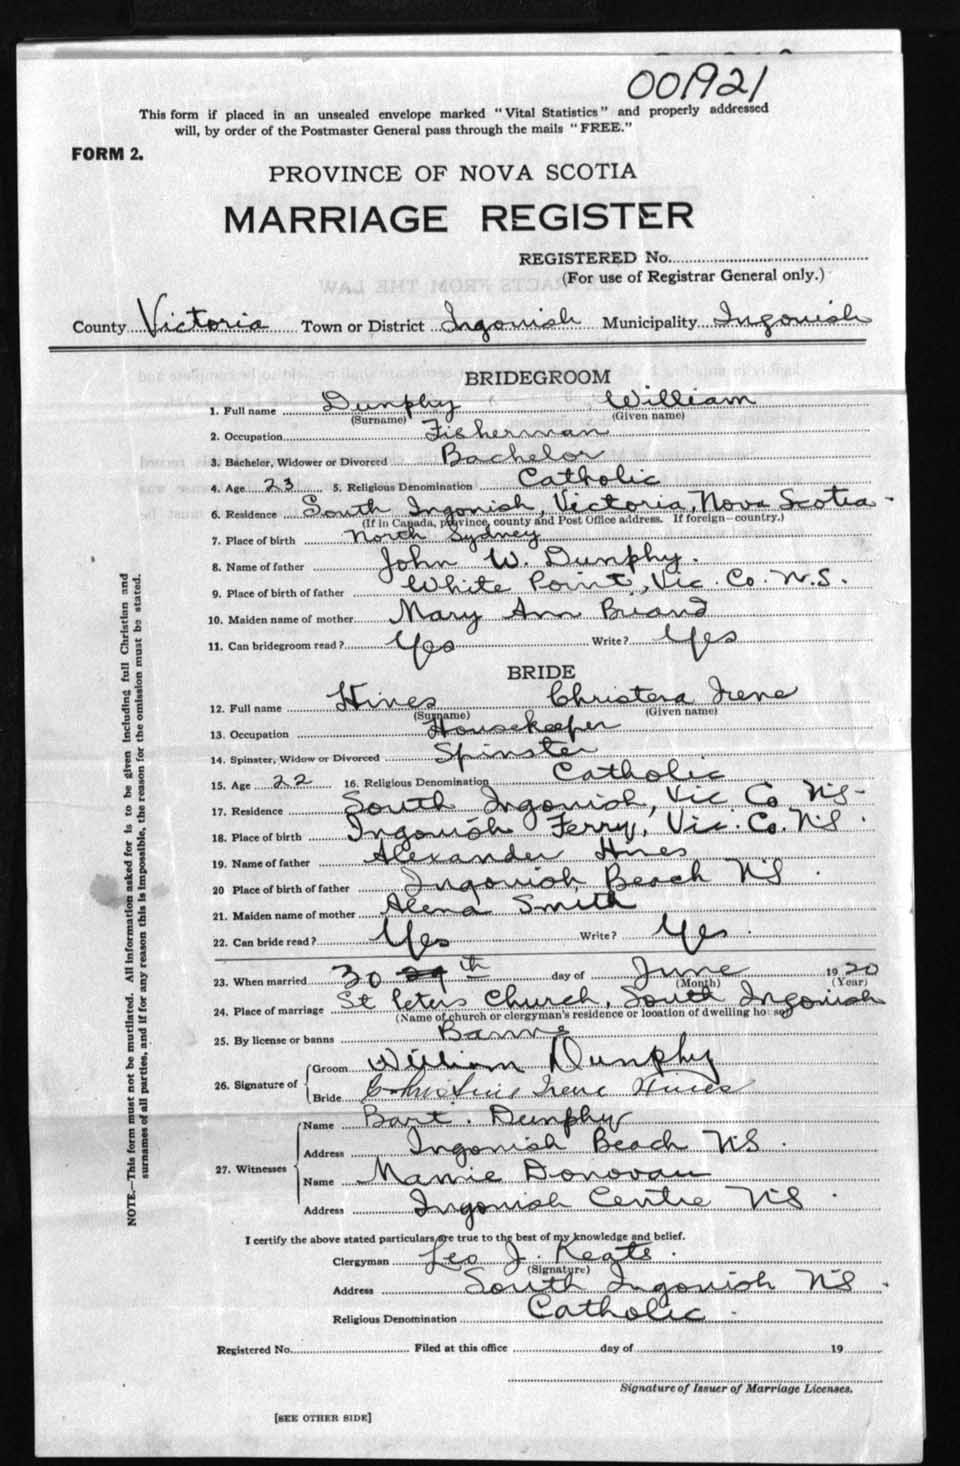 001921
This form if placed in an unsealed envelope marked "Vital Statistics" and properly addressed
will, by order of the Postmaster General pass through the mails "FREE."
FORM 2.
PROVINCE OF NOVA SCOTIA
MARRIAGE REGISTER
REGISTERED No.
(For use of Registrar General only.)
County Victoria Town or District Ingonish Municipality Ingonish
BRIDEGROOM
1. Full name Dunphy William
(Surname) (Given name)
2. Occupation Fisherman
3. Bachelor, Widower or Divorced Bachelor
4. Age 23 5. Religious Denomination Catholic
6. Residence South Ingonish, Victoria, Nova Scotia -
(If in Canada, province, county and Post Office address. If foreign—country.)
7. Place of birth North Sydney
8. Name of father John W. Dunphy.
9. Place of birth of father White Point, Vic. Co. N.S.
10. Maiden name of mother Mary Ann Briand
11. Can bridegroom read? Yes Write? Yes
BRIDE
12. Full name Hines Christena Irene
(Surname) (Given name)
13. Occupation Housekeeper
14. Spinster, Widow or Divorced Spinster
15. Age 22 16. Religious Denomination Catholic
17. Residence South Ingonish, Vic Co. NS-
18. Place of birth Ingonish Ferry, Vic. Co. NS.
19. Name of father Alexander Hines
20 Place of birth of father Ingonish Beach NS.
21. Maiden name of mother Alena Smith
22. Can bride read? Yes Write? Yes.
23. When married 30 29 th day of June 1920
(Month) (Year)
24. Place of marriage St Peters Church, South Ingonish
(Name of church or clergyman's residence or location of dwelling house)
25. By license or banns Banns
26. Signature of Groom William Dunphy
Bride Christina Irene Hines
27. Witnesses Name Bart. Dunphy
Address Ingonish Beach NS.
Name Mamie Donovan
Address Ingonish Centre NS.
I certify the above stated particulars are true to the best of my knowledge and belief.
Clergyman Leo J. Keats.
(Signature)
Address South Ingonish NS.
Religious Denomination Catholic.
Registered No. Filed at this office day of 19
Signature of Issuer of Marriage Licenses.
[SEE OTHER SIDE]
NOTE.—This form must not be mutilated. All information asked for is to be given including full Christian and
surnames of all parties, and if for any reason this is impossible, the reason for the omission must be stated.